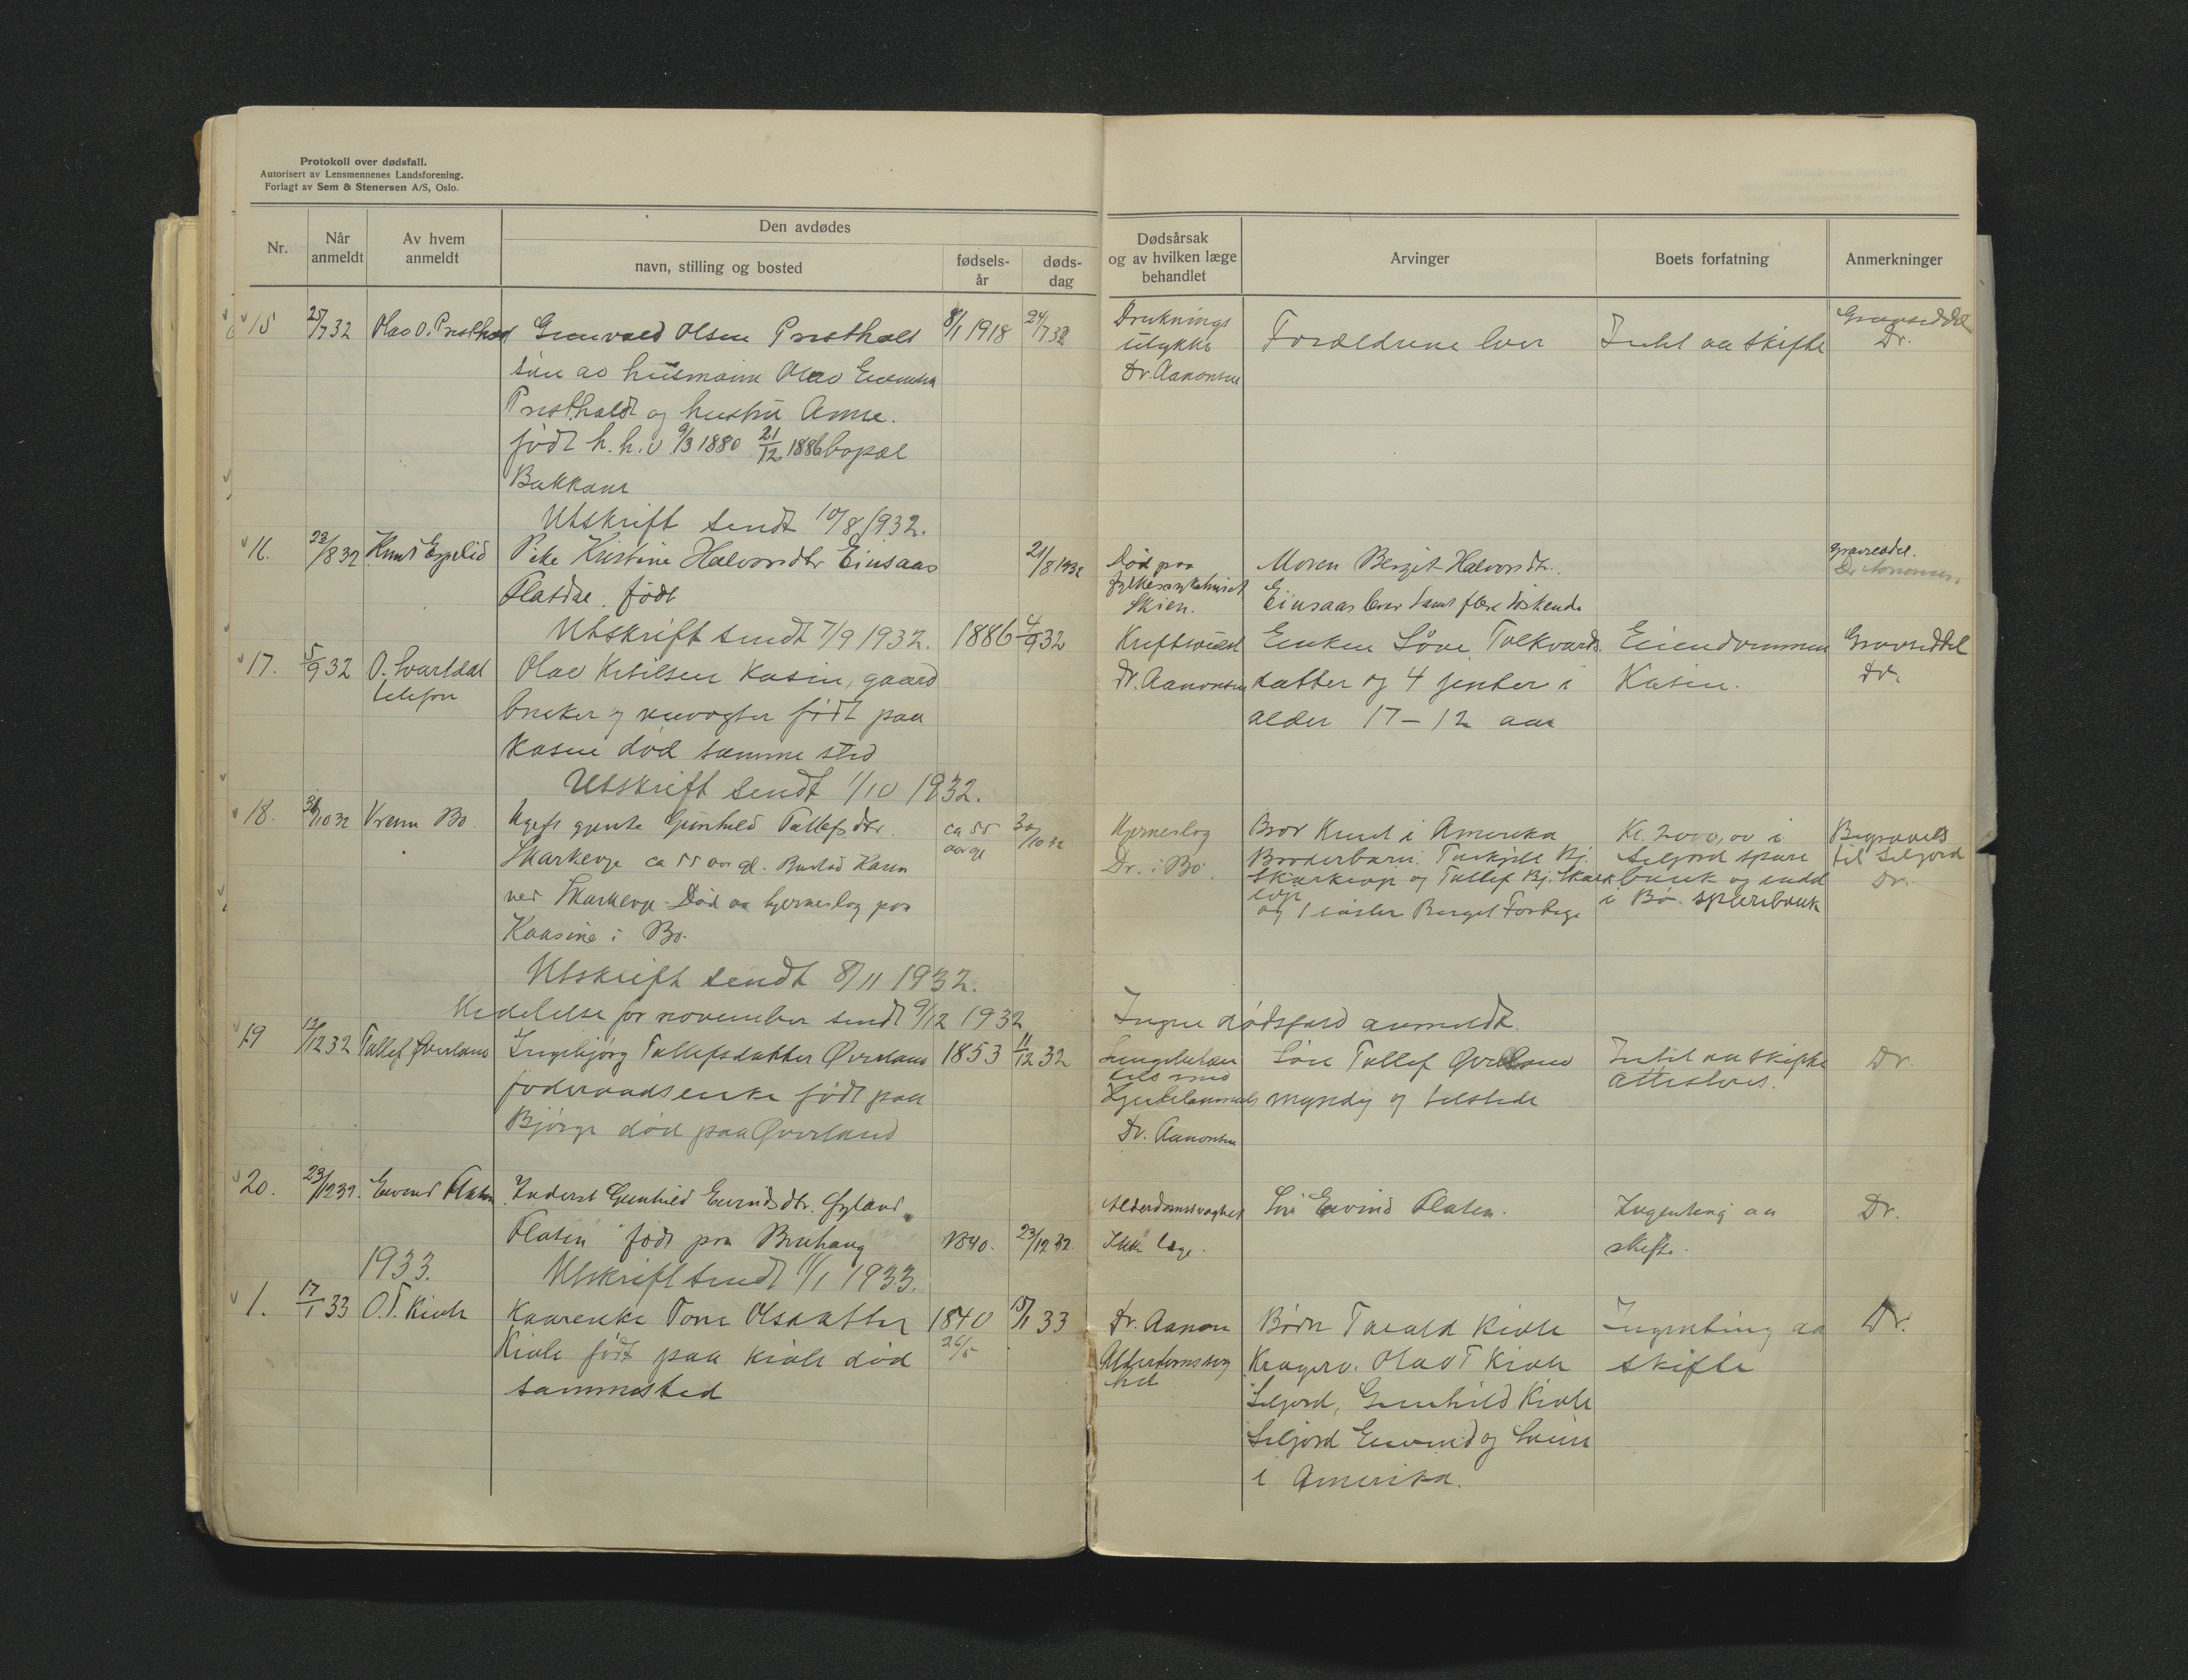 Protokoll over dødsfall.
Autorisert av Lensmennenes Landsforening.
Forlagt av Sem & Stenersen A/S, Oslo.
Nr.
Når anmeldt
Av hvem anmeldt
Den avdødes
navn, stilling og bosted
fødsels-år
døds-dag
Dødsårsak og av hvilken læge behandlet
Arvinger
Boets forfatning
Anmerkninger
15 25/7 32 Olav O. Presthold Gunvald Olsen Presthold 8/1 1918 24/7 32
søn av husmann Olav
Presthold og hustru Anne.
født h. h. v 9/3 1880 21/12 1886 bopæl
Bakkane
Druknings
ulykke
Dr. Aanonsen
Foreldrene lever
Intet aa skifte
Gravseddel
Dr.
Utskrift sendt 10/8 1932.
16. 23/8 32 Knut Pike Kristine Halvorsdtr Einsaas 21/8 1932
Flatdal. født
Død paa
fylkessykehuset
Skien.
Moren Bergit Halvorsdtr.
Einsaas lever samt flere søskende
Gravseddel.
Dr Aanonsen.
Utskrift sendt 7/9 1932.
17. 5/9 32 O. Svartdal Olav Ketilsen Kasin, gaard 1886 4/9 32
telefon
bruker og født paa
Kasin død samme sted
Kreftsvulst
Dr. Aanonsen
Enken Tolkvards
datter og 4 jenter i
alder 17 – 12 aar
Eiendommen
Kasin.
Gravseddel
Dr.
Utskrift sendt 1/10 1932.
18. 31/10 32 Bø. Ugift gjente Gunhild Tallefsdtr. ca 55 aar gl 30/10 32
Skarkeoge ca 55 aar gl. Bustad
ved Skarkeoge Død av hjerneslag paa
Kaasine i Bø.
Hjerneslag
Dr. i Bø.
Bror Knut i Amerika
Broderbarn. Bj.
og Tallef Bj.
og 1 søster Berget
Kr. 2000,00 i
Seljord spare
bank og indd
i Bø. sparebank
Begravels
til Seljord
Dr.
Utskrift sendt 8/11 1932.
Medelelse for november sendt 9/12 1932
Ingen dødsfald anmeldt.
19 12/12 32 Tallef Øverland Ingebjørg Tallefsdatter Øverland 1853 11/12 32
foderaadsenke født paa
Bjørge død paa Øverland
Dr. Aanonsen
Søn Tallef Øverland
myndig og tilstede
Intet aa skifte
attesteres.
Dr.
20. 23/12 32. Eivind Flatin Inderst Gunhild Eivindsdtr. Gyland
Flatin født paa Bruhaug 1840. 23/12 32.
Alderdomssvaghet
Ikke læge.
Søn Eivind Flaten.
Ingenting aa
skifte.
Dr.
1933. Utskrift sendt 11/1 1933.
1. 17/1 33 O. T. Kivle Kaarenke Tone Olsdatter 1840 15/1 33
26/5
Kivle født paa Kivle død
sammested
Dr. Aanon
Alderdomssvag
het
Børn Tarald Kivle
Kragerø. Olav T Kivle
Seljord, Gunhild Kivle
Seljord Eivind og Svein
i Amerika.
Ingenting aa
skifte
Dr.